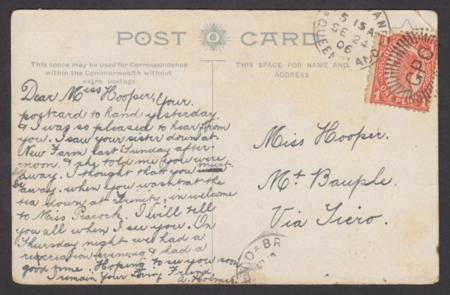 POST CARD
This space may be used for Correspondence
within the Commonwealth without
extra postage
THIS SPACE FOR NAME AND
ADDRESS
Dear Miss Hooper, Your
postcard to hand yesterday
& I was so pleased to hear from
you. I saw your sister down at
New Farm last Sunday after-
noon & she told me you were
away. I thought that you must
be away, when you wasn't at the
tea down at Trinity, in welcome
to Miss Peacock. I will tell
you all when I see you. On
Thursday night we had a
recreation evening & had a
good time. Hoping to see you soon
I remain Your loving Friend
A. Holmes
Miss Hooper.
Mt Bauple.
Via Tiaro.
GPO
5 15 A
SE 24
06
QUEEN
BR